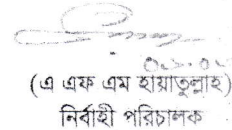 (এ এফ এম হায়াতুল্লাহ)
নির্বাহী পরিচালক